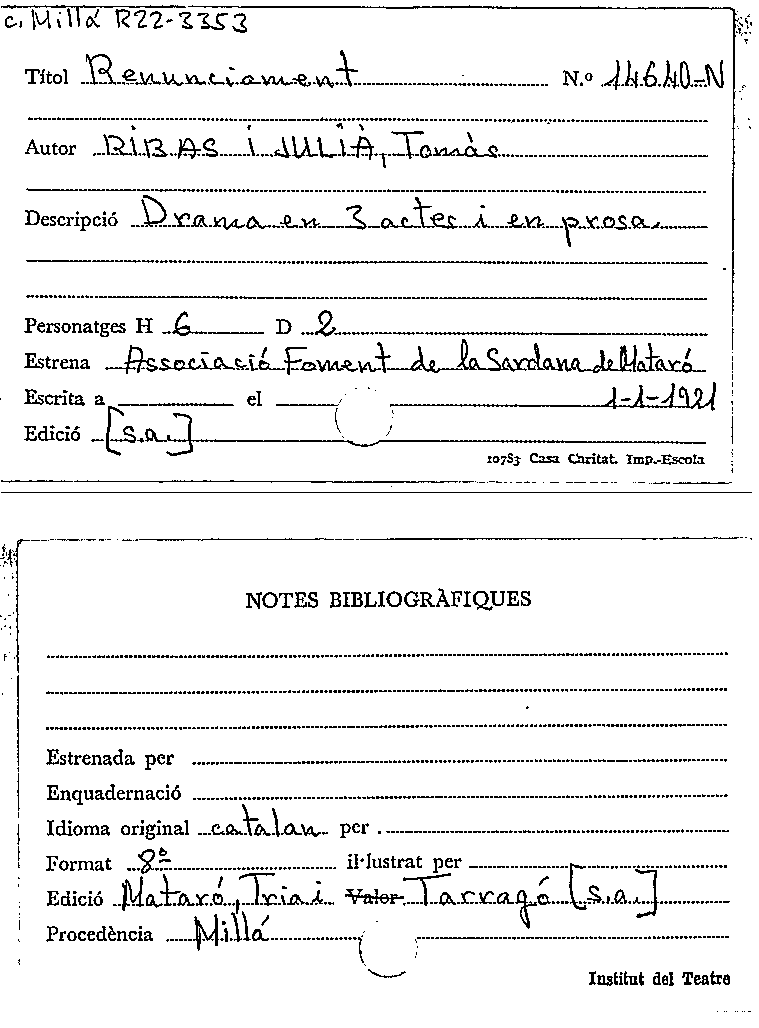 c. Millá R22-3353
Títol Renunciament N.º 14640-N
Autor RIBAS i JULIÀ, Tomàs
Descripció Drama en 3 actes i en prosa.
Personatges H 6 D 2
Estrena Associació Foment de la Sardana de Mataró
Escrita a el 1-1-1921
Edició [s.a.]
10783 Casa Caritat. Imp.-Escola
NOTES BIBLIOGRÀFIQUES
Estrenada per
Enquadernació
Idioma original catalan per
Format 8º il·lustrat per
Edició Mataró, Tria i Valor Tarragó [s.a.]
Procedència Millá
Institut del Teatre